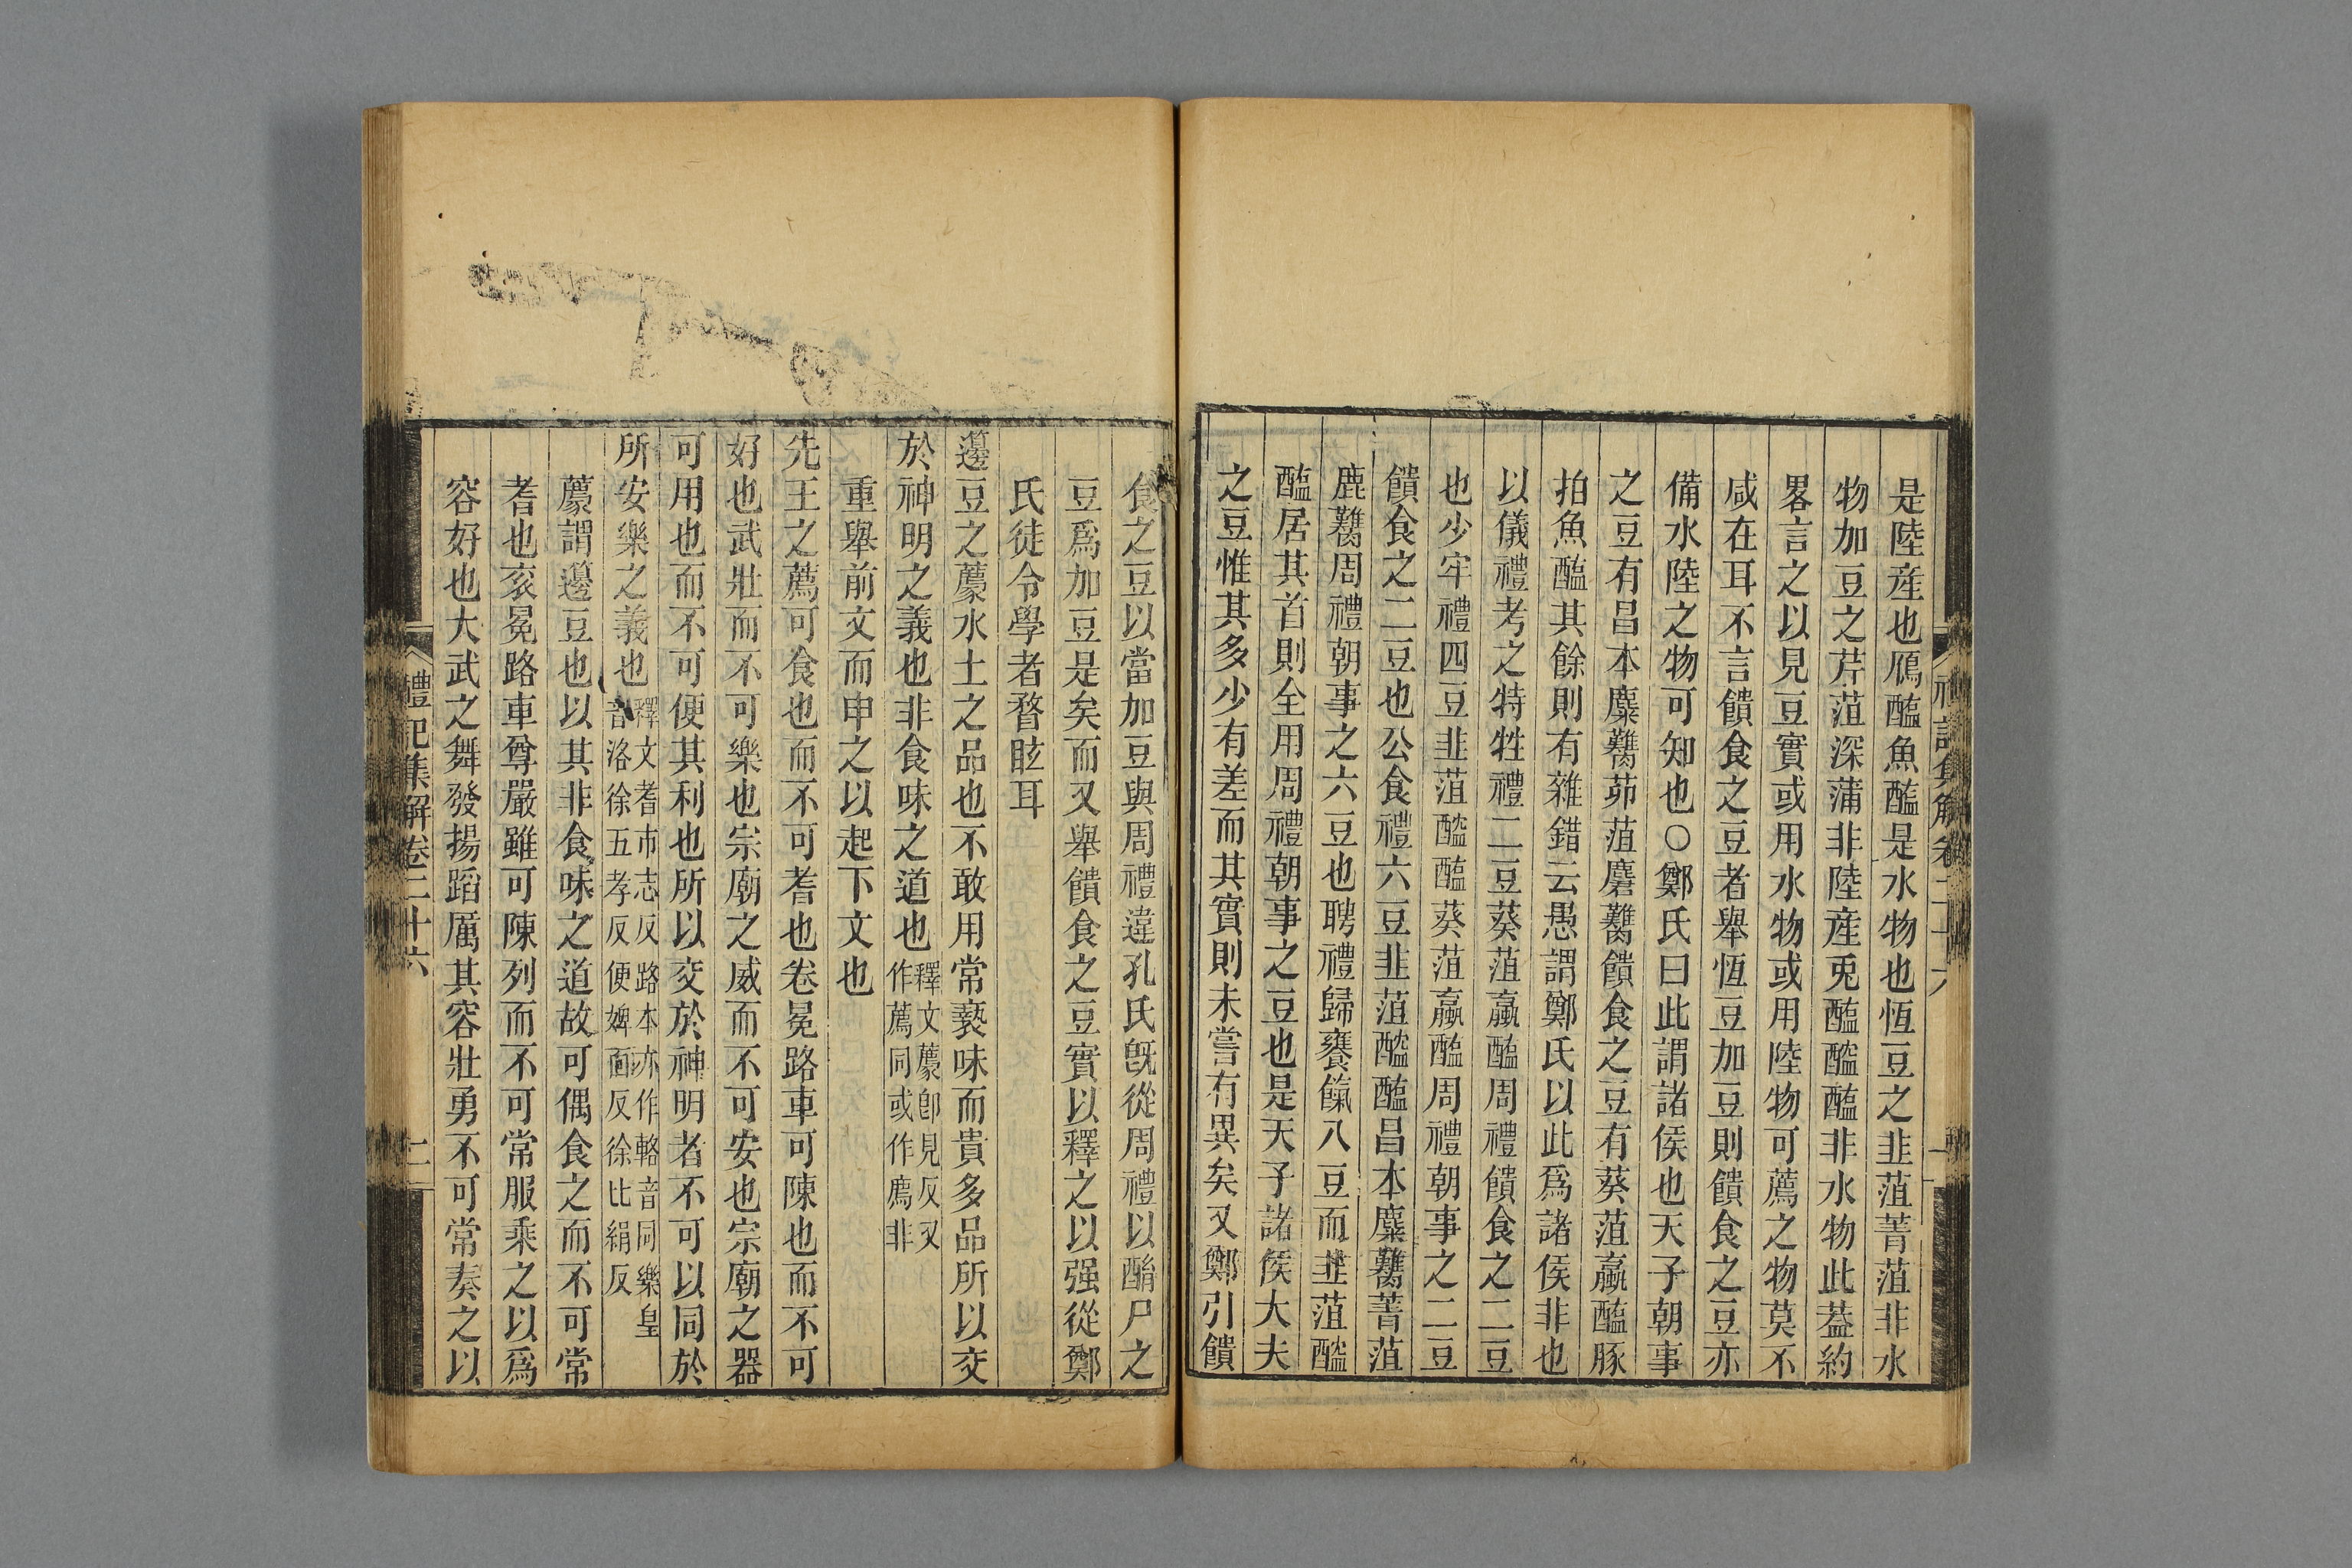 是陸産也鴈醢魚醢是水物也恆豆之韭菹菁菹非水
物加豆之芹菹深蒲非陸産兎醢醓醢非水物此葢約
畧言之以見豆實或用水物或用陸物可薦之物莫不
咸在耳不言饋食之豆者舉恆豆加豆則饋食之豆亦
備水陸之物可知也○鄭氏曰此謂諸侯也天子朝事
之豆有昌本麋臡茆菹麏臡饋食之豆有葵菹蠃醢豚
拍魚醢其餘則有雜錯云愚謂鄭氏以此爲諸侯非也
以儀禮考之特牲禮二豆葵菹蠃醢周禮饋食之二豆
也少牢禮四豆韭菹醓醢葵菹蠃醢周禮朝事之二豆
饋食之二豆也公食禮六豆韭菹醓醢昌本麋臡菁菹
鹿臡周禮朝事之六豆也聘禮歸饔餼八豆而韭菹醓
醢居其首則全用周禮朝事之豆也是天子諸侯大夫
之豆惟其多少有差而其實則未嘗有異矣又鄭引饋
食之豆以當加豆與周禮違孔氏旣從周禮以酳尸之
豆爲加豆是矣而又舉饋食之豆實以釋之以强從鄭
氏徒令學者瞀眩耳
籩豆之薦水土之品也不敢用常褻味而貴多品所以交
於神明之義也非食味之道也釋文薦卽見反又作薦同或作廌非
重舉前文而申之以起下文也
先王之薦可食也而不可耆也卷冕路車可陳也而不可
好也武壯而不可樂也宗廟之威而不可安也宗廟之器
可用也而不可便其利也所以交於神明者不可以同於
所安樂之義也釋文耆市志反路本亦作輅音同樂皇音洛徐五孝反便婢面反徐比絹反
薦謂籩豆也以其非食味之道故可偶食之而不可常
耆也衮冕路車尊嚴雖可陳列而不可常服乘之以爲
容好也大武之舞發揚蹈厲其容壯勇不可常奏之以
禮記集解卷二十六
二